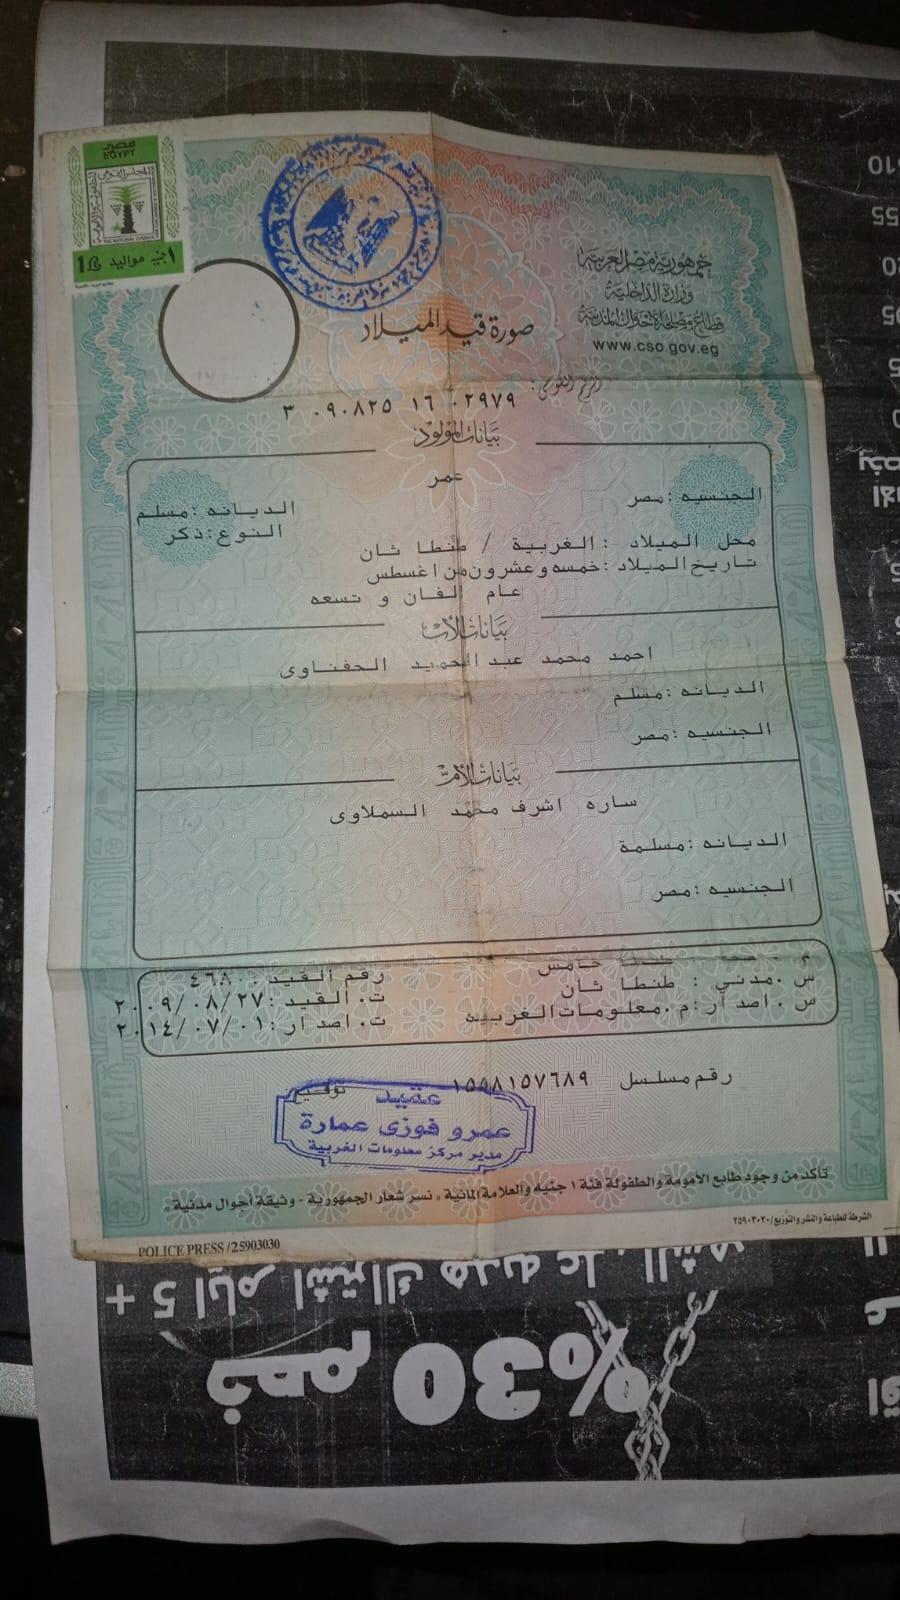 مصر
EGYPT
1ج اجنيه مواليد
جمهورية مصر العربية
وزارة الداخلية
قطاع مصلحة الأحوال المدنية
www.cso.gov.eg
صورة قيد الميلاد
الرقم القومى :
٣ ٠٩٠٨٢٥ ١٦ ٠٢٩٧٩
بيانات المولود
عمر
الجنسيه :مصر
الديانه :مسلم
النوع :ذكر
محل الميلاد : الغربية / طنطا ثان
تاريخ الميلاد :خمسه وعشرون من اغسطس
عام الفان و تسعه
بيانات الأب
احمد محمد عبد الحميد الحفناوى
الديانه :مسلم
الجنسيه :مصر
بيانات الأم
ساره اشرف محمد السملاوى
الديانه :مسلمة
الجنسيه :مصر
طنطا خامس
س .مدني : طنطا ثان
س . اصدار :م .معلومات الغربيه
رقم القيد : ٤٦٨
ت. القيد :٢٠٠٩/٠٨/٢٧
ت. اصدار :٢٠١٤/٠٧/٠١
رقم مسلسل
توقيع
عقيد
عمرو فوزى عمارة
مدير مركز معلومات الغربية
تأكد من وجود طابع الأمومة والطفولة فئة ١ جنيه والعلامة المائية ، نسر شعار الجمهورية - وثيقة أحوال مدنية ،
الشرطة للطباعة والنشر والتوزيع/٢٥٩٠٣٠٣٠
POLICE PRESS/25903030
+ 5 ايام اشتراك هديه على الشهر
خصم 30%